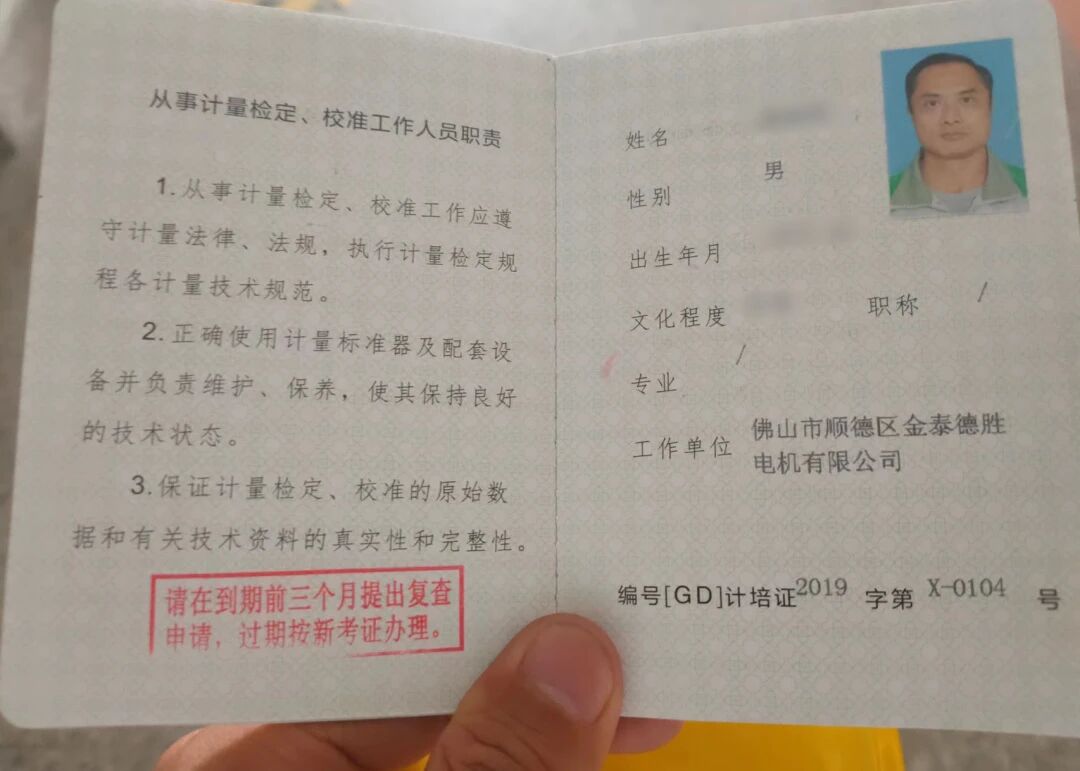 从事计量检定、校准工作人员职责
1.从事计量检定、校准工作应遵
守计量法律、法规，执行计量检定规
程各计量技术规范。
2.正确使用计量标准器及配套设
备并负责维护、保养，使其保持良好
的技术状态。
3.保证计量检定、校准的原始数
据和有关技术资料的真实性和完整性。
请在到期前三个月提出复查
申请，过期按新考证办理。
姓名
性别 男
出生年月
文化程度 职称 /
专业 /
工作单位 佛山市顺德区金泰德胜
电机有限公司
编号[GD]计培证2019 字第 X-0104 号